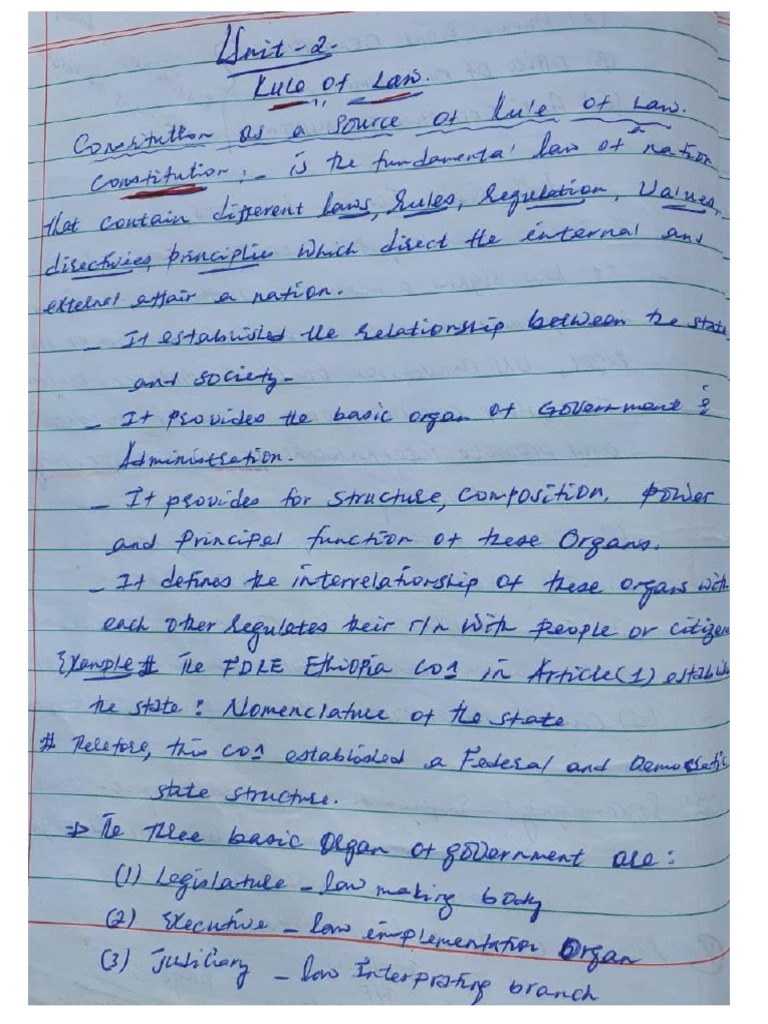 Unit - 2.
Rule of Law.
Constitution as a source of Rule of Law.
Constitution :- is the fundamental law of a nation
that contain different laws, Rules, Regulation, Values,
directives, principlies which disect the internal and
external affair a nation.
- It established the relationship between the state
and society-
- It provides the basic organ of Government &
Administration.
- It provides for structure, composition, power
and principal function of these Organs.
- It defines the interrelationship of these organs with
each other regulates their r/n with people or citizen
Example # The FDRE Ethiopia con in Article (1) establish
the state : Nomenclature of the state
# Therefore, this con established a Federal and Democratic
state structure.
⇒ The three basic Organ of government are :
(1) Legislature - law making body
(2) Executive - law implementation Organ
(3) Judiciary - law Interprating branch